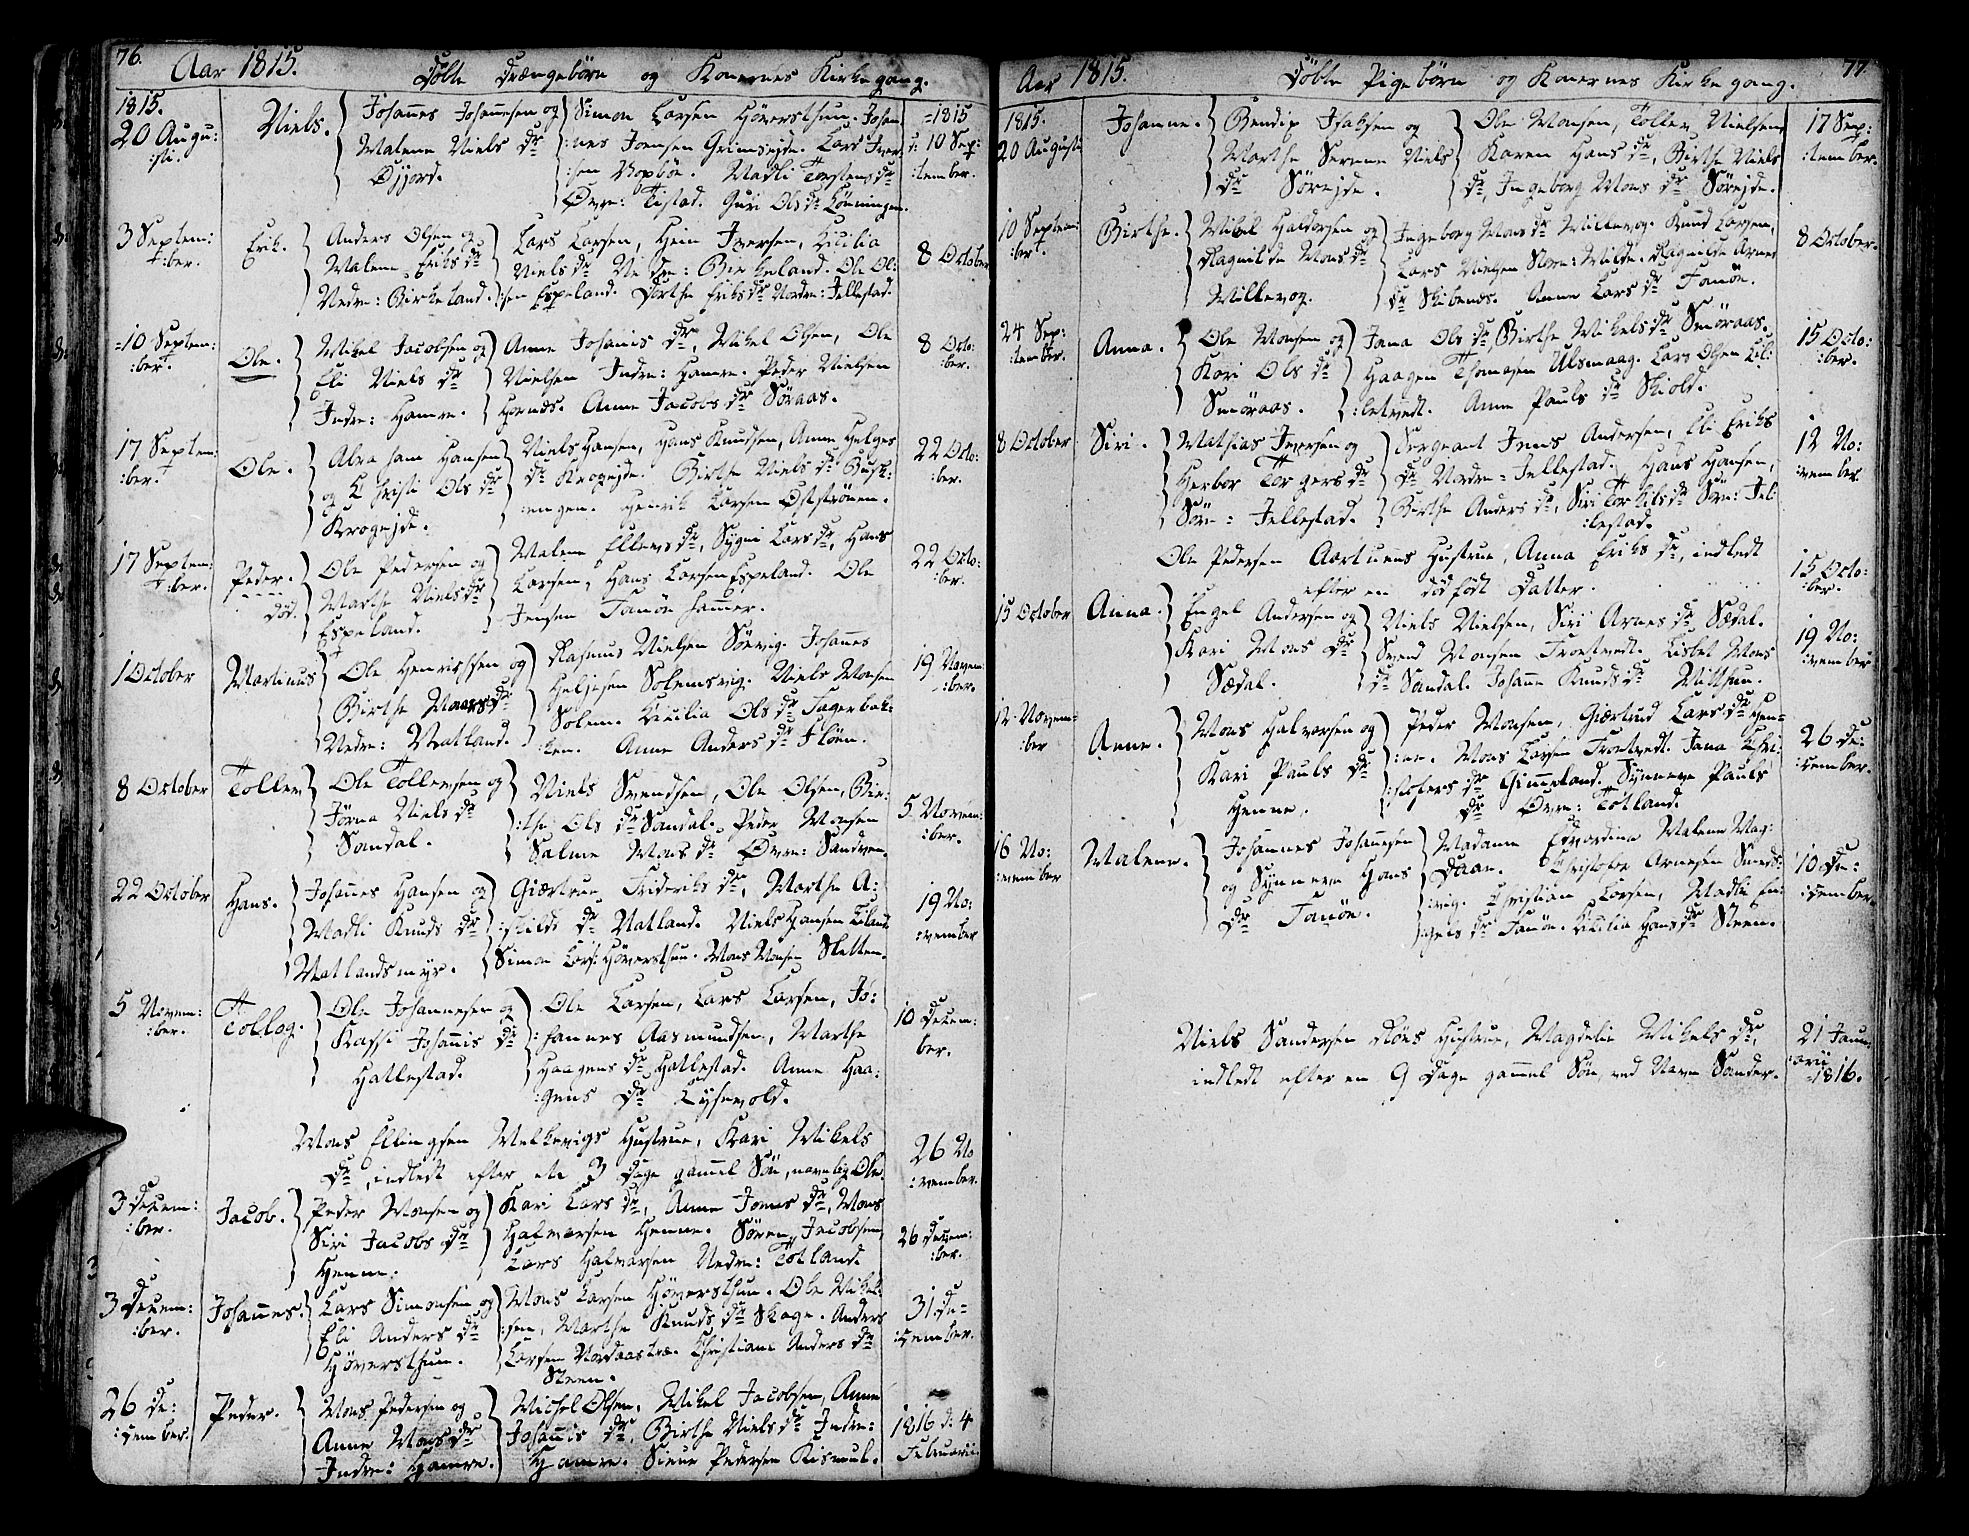 76.
Aar 1815. Döbte Drængebörn og Konernes Kirkegang.
1815.
20 Augu:
:sti.
Niels.
Johannes Johannesen og
Malene Niels dr
Öyjord.
Simon Larsen Höversthun. Johan
:nes Joensen Grimseyde. Lars Iver
:sen Madli Torstens dr
Övre: Titstad. Guri Ols dr Lönningen.
=1815
d: 10 Sep:
:tember.
3 Septem:
:ber.
Erik.
Anders Olsen og
Malene Eriks dr
Nedre: Birkeland.
Lars Larsen, Hein Iversen, Cicilia
Niels dr Nedre: Birkeland. Ole Ol:
:sen Espeland. Dorthe Eriks dr Nordre: Jellestad.
8 October
=10 Septem:
:ber.
Ole.
Mikel Jacobsen og
Eli Niels dr
Indre: Hamre.
Anne Johanis dr, Mikel Olsen, Ole
Nielsen Indre: Hamre. Peder Nielsen
Hornæs. Anne Jacobs dr Söraas.
8 Octo:
:ber.
17 Septem:
:ber.
Ole.
Abraham Hansen
og Christi Ols dr
Krogeyde.
Niels Hansen, Hans Knudsen, Anne Helges
dr Krogeyde. Birthe Niels dr Busk:
:engen. Henrik Larsen Östströnen.
22 Octo:
:ber.
17 Septem:
:ber.
Peder.
död.
Ole Pedersen og
Marthe Niels dr
Espeland.
Malene Ellens dr, Sygni Lars dr, Hans
Larsen, Hans Larsen Espeland. Ole
Jensen Fanöe hammer.
22 Octo:
:ber.
1 October
Martinus
Ole Henrichsen og
Birthe Mons dr
Nedre: Natland.
Rasmus Nielsen Sörvig. Johannes
Heljesen Solemsvig. Niels Monsen
Solem. Cicilia Ols dr Fagerbak:
:ken. Anne Anders dr Flöen.
19 Novem:
:ber.
8 October
Tollev
Ole Tollevsen og
Jörna Niels dr
Sandal.
Niels Svendsen, Ole Olsen, Bir:
:the Ols dr Sandal. Peder Monsen
Salme Mons dr Övre: Sandven.
5 Novem:
:ber.
22 October
Hans.
Johannes Hansen og
Madli Knuds dr
Natlandsmyr.
Giærtrue Friderichs dr, Marthe A:
:skilds dr Natland. Niels Hansen Tiland
Simon Lars: Höversthun. Mons Monsen Sletten.
19 No:
:vember
5 Novem:
:ber.
Tollog.
Ole Johannesen og
Kassi Johannis dr
Hallestad.
Ole Larsen, Lars Larsen, Jo:
:hannes Aasmundsen, Marthe
Haagens dr Hallestad. Anne Haa:
:gens dr Lysevold.
10 Decem:
ber.
Mons Ellingsen Melkevigs Hustrue, Kari Mikels
dr, indledt efter ete 3 Dage gammel Sön, navnlig Ole.
26 No
:vember.
3 Decem:
:ber.
Jacob.
Peder Monsen og
Siri Jacobs dr
Henne.
Kari Lars dr, Anne Jones dr, Mons
Halvorsen Henne. Sören Jacobsen
Lars Halvorsen Nedre: Totland.
26 Decem:
:ber.
3 Decem:
:ber.
Johannes.
Lars Simonsen og
Eli Anders dr
Höversthun.
Mons Larsen Höversthun. Ole Mikel:
:sen, Marthe Knuds dr Skage. Anders
Larsen Nordaastræ. Christiane Anders dr
Steen.
31 De=
:cember.
26 De:
:cember.
Peder.
Mons Pedersen og
Anne Mons dr
Indre: Hamre.
Michel Olsen, Mikel Jacobsen, Anne
Johannis dr, Birthe Niels dr Indre:
Hamre. Siver Pedersen Rismul.
1816 d: 4
Februarii
77.
Aar 1815. Döbte Pigebörn og Konernes Kirkegang.
1815.
20 Augusti
Johanne.
Bendix Isaksen og
Marthe Serene Niels
dr Söreyde.
Ole Monsen, Tollev Nielsen,
Karen Hans dr, Birthe Niels
dr, Ingeborg Mons dr Söreyde.
17 Sep:
:tember.
10 Septem:
:ber.
Birthe.
Mikel Haldorsen og
Ragnilde Mons dr
Millevog.
Ingeborg Mons dr Millevog. Knud Larsen,
Lars Nielsen Store: Milde. Ragnilde Arnes
dr Skibenes. Anne Lars dr Fanöe.
8 October.
24 Sep:
:tember.
Anna.
Ole Monsen og
Kari Ols dr
Smöraas.
Jana Ols dr, Birthe Mikels dr Smöraas.
Haagen Thomesen Ulsmaag. Lars Olsen Lil:
:letvedt. Anne Pauls dr Skiold.
15 Octo:
:ber.
8 October
Siri.
Mathias Iversen og
Herbor Torgers dr
Söre: Jellestad.
Sergeant Jens Andersen, Eli Eriks
dr Nordre=Jellestad. Hans Hansen,
Birthe Anders dr, Siri Torkils dr Söre: Jel:
:lestad.
12 No:
:vember
Ole Pedersen Aartuens Hustrue, Anna Eriks dr, indledt
efter en död född Datter.
15 Octo:
:ber.
15 October
Anna.
Engel Andersen og
Kari Mons dr
Sædal.
Niels Nielsen, Siri Arnes dr Sædal.
Svend Monsen Troetvedt. Lisbet Mons
dr Sandal. Johanne Knuds dr Mitthun.
19 No:
:vember
12 Novem=
:ber
Anne.
Mons Halvorsen og
Kari Pauls dr
Henne.
Peder Monsen, Giærtrud Lars dr Hen=
:ne. Mons Larsen Troetvedt. Jana Chri:
:stofers dr Gimmeland. Synneve Pauls
dr Övre: Totland.
26 De:
:cember.
16 No:
:vember
Malene.
Johannes Johannesen
og Synneve Hans
dr Fanöe.
Madame Edvardine Malene Mag:
Daae. Christofer Arnesen Smeds:
:vig. Christian Larsen, Madli En:
:gels dr Fanöe. Cicilia Hans dr Steen.
10 De:
:cember
Niels Sandersen Röes Hustrue, Magdelie Mikels dr,
indledt efter en 9 Dage gammel Sön, ved Navn Sander.
21 Janu:
:arii
=1816.